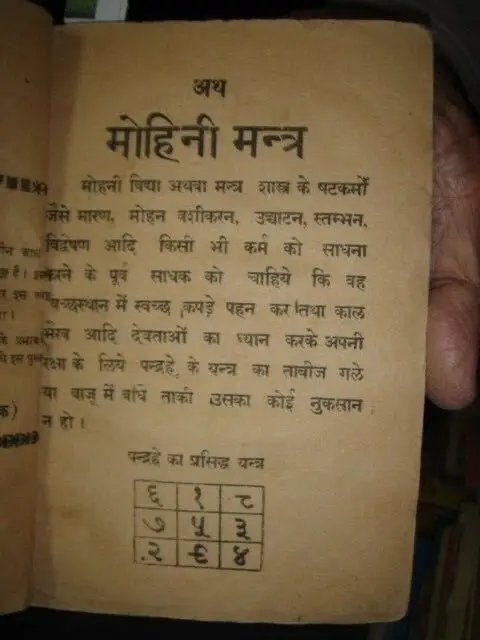 अथ
मोहिनी मन्त्र
मोहनी विद्या अथवा मन्त्र शास्त्र के षटकर्मों
जैसे मारण, मोहन वशीकरन, उच्चाटन, स्तम्भन,
विद्वेषण आदि किसी भी कर्म को साधना
करने के पूर्व साधक को चाहिये कि वह
स्वच्छस्थान में स्वच्छ कपड़े पहन कर तथा काल
भैरव आदि देवताओं का ध्यान करके अपनी
रक्षा के लिये पन्द्रहे के यन्त्र का ताबीज गले
या बाजू में बांधे ताकी उसका कोई नुकसान
न हो।
पन्द्रहे का प्रसिद्ध यन्त्र
६ १ ८
७ ५ ३
२ ९ ४